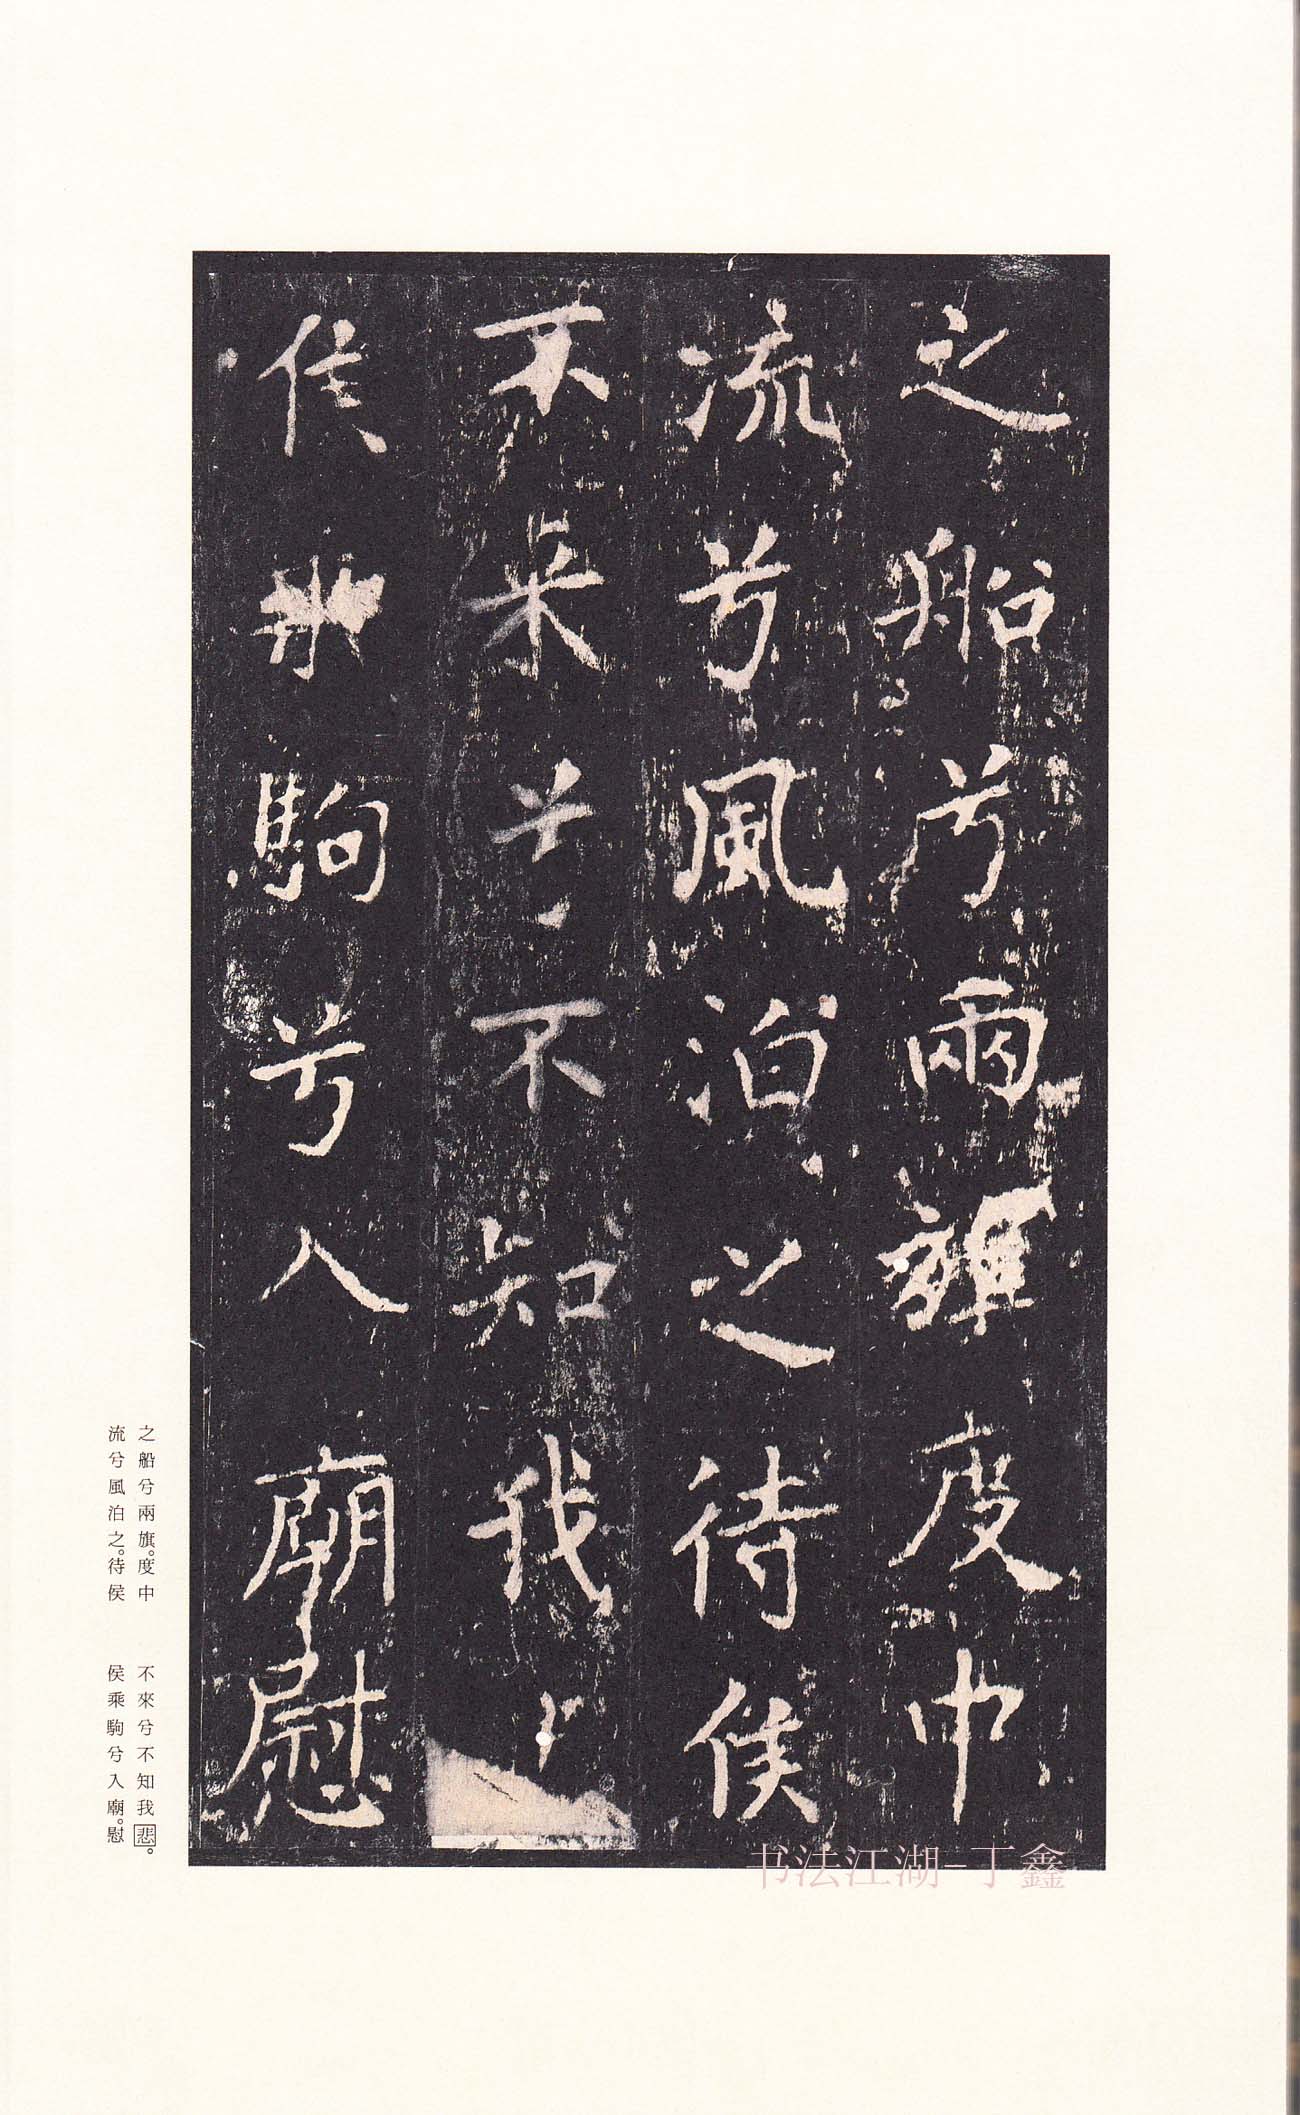 之船兮兩旗度中
流兮風泊之待侯
不來兮不知我
侯乘駒兮入廟慰
之船兮兩旗。度中
流兮風泊之。待侯
不來兮不知我悲。
侯乘駒兮入廟。慰
书法江湖-丁鑫